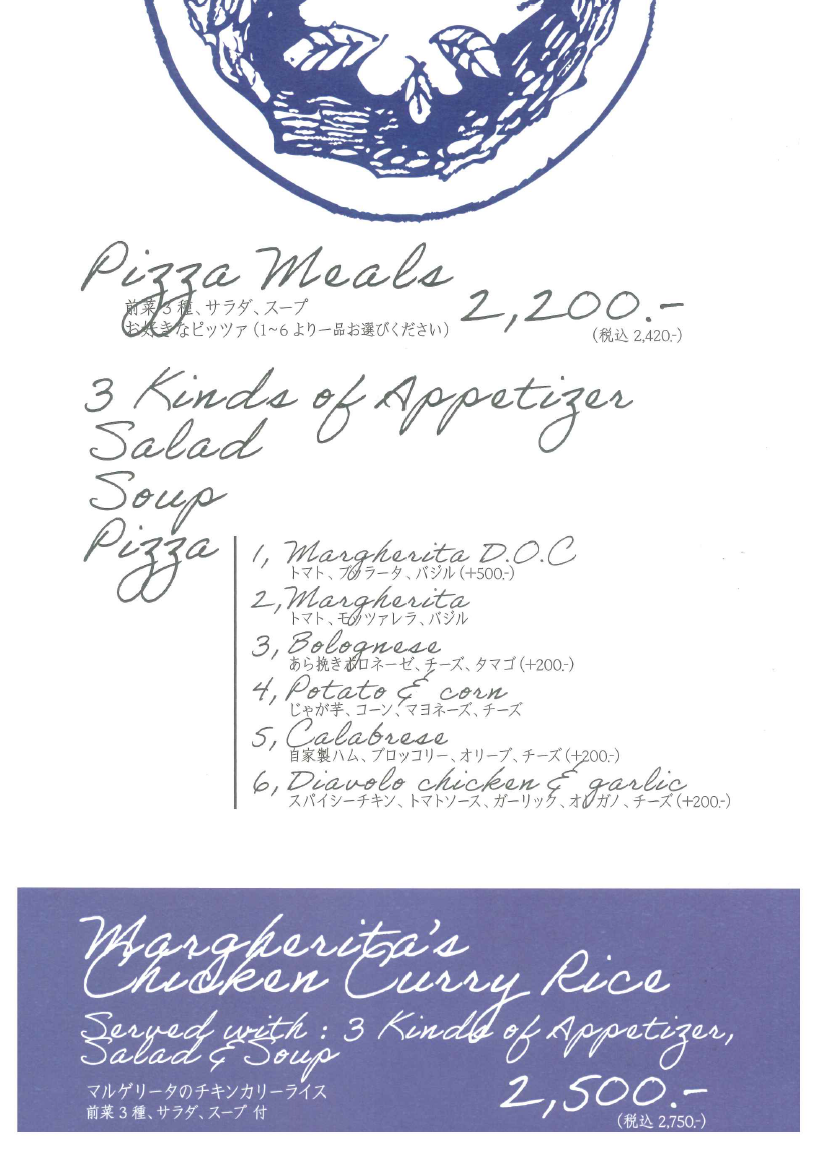 Pizza Meals
前菜3種、サラダ、スープ
お好きなピッツァ（1~6より一品お選びください）
2,200.-
(税込 2,420.-)
3 Kinds of Appetizer
Salad
Soup
Pizza
1, Margherita D.O.C
トマト、ブラータ、バジル(+500.-)
2, Margherita
トマト、モッツァレラ、バジル
3, Bolognese
あら挽きボロネーゼ、チーズ、タマゴ(+200.-)
4, Potato & corn
じゃが芋、コーン、マヨネーズ、チーズ
5, Calabrese
自家製ハム、ブロッコリー、オリーブ、チーズ(+200.-)
6, Diavolo chicken & garlic
スパイシーチキン、トマトソース、ガーリック、オレガノ、チーズ(+200.-)
Margherita's
Chicken Curry Rice
Served with : 3 Kinds of Appetizer,
Salad & Soup
マルゲリータのチキンカリーライス
前菜3種、サラダ、スープ 付
2,500.-
(税込 2,750.-)